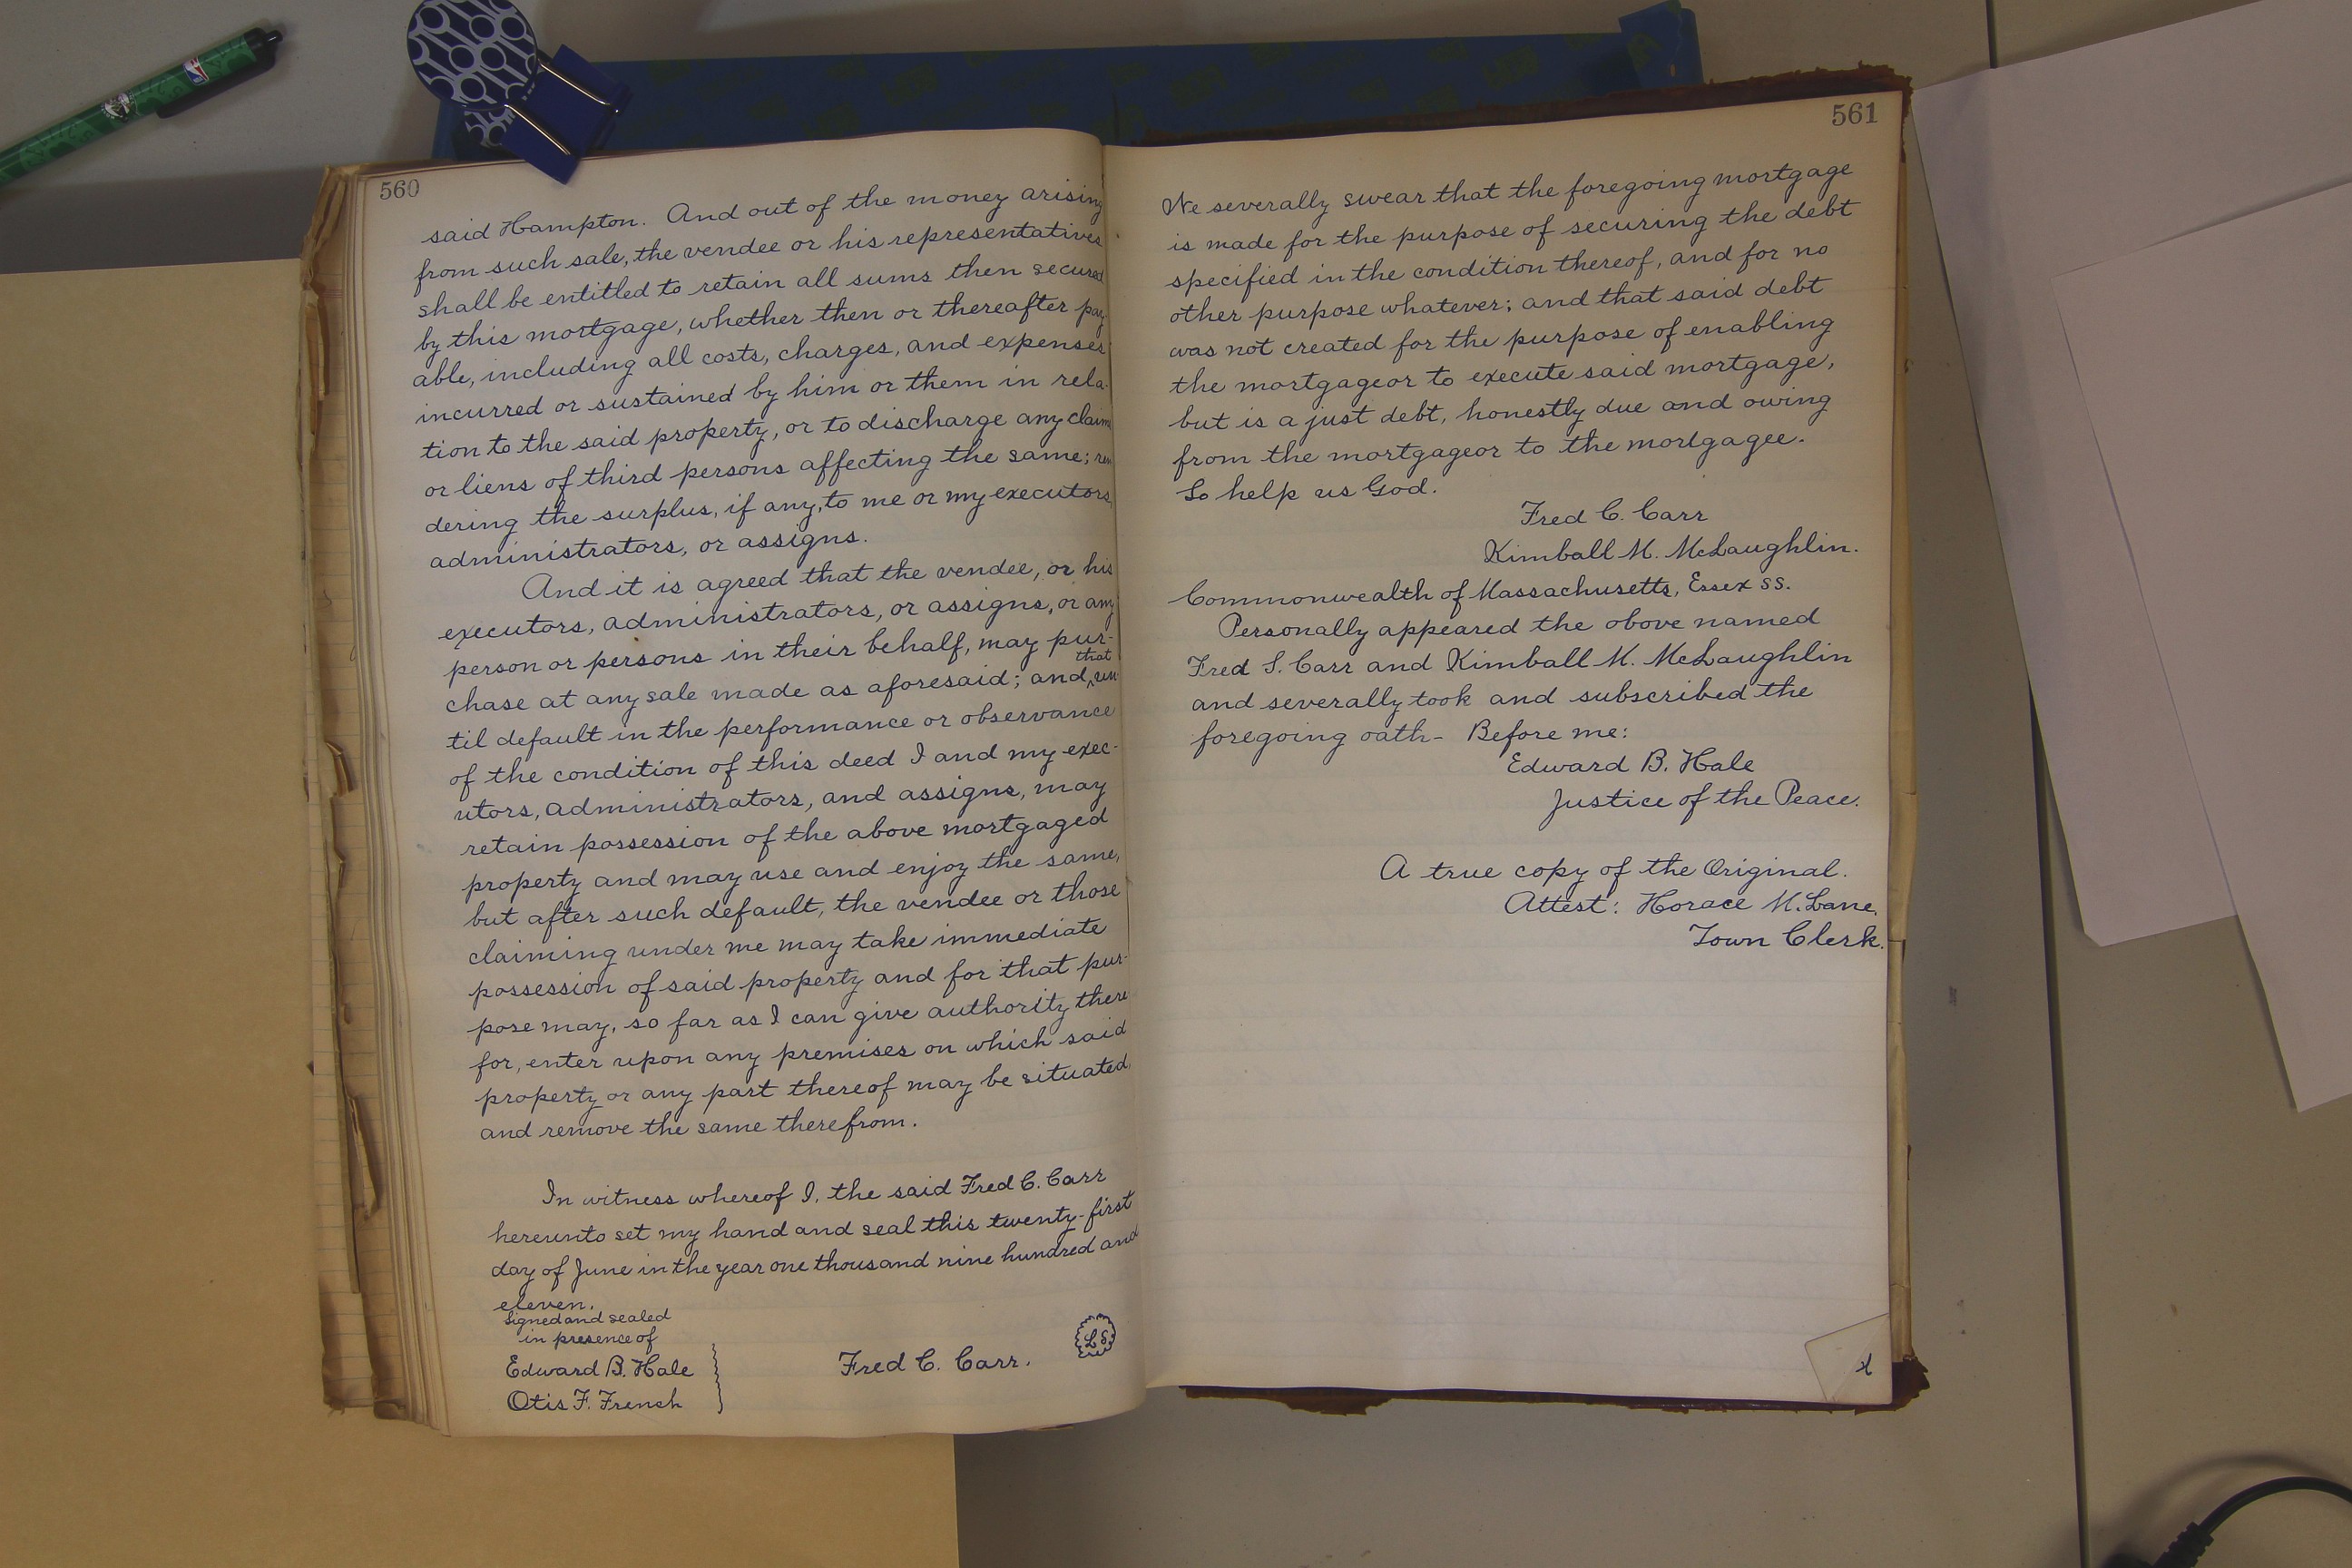 560
said Hampton. And out of the money arising
from such sale, the vendee or his representatives
shall be entitled to retain all sums then secured
by this mortgage, whether then or thereafter pay
able, including all costs, charges, and expenses
incurred or sustained by him or them in rela-
tion to the said property, or to discharge any claims
or liens of third persons affecting the same; ren
dering the surplus, if any, to me or my executors,
administrators, or assigns.
And it is agreed that the vendee, or his
executors, administrators, or assigns, or any
person or persons in their behalf, may pur-
that
chase at any sale made as aforesaid; and ‸ un-
til default in the performance or observance
of the condition of this deed I and my exec-
utors, administrators, and assigns, may
retain possession of the above mortgaged
property and may use and enjoy the same,
but after such default, the vendee or those
claiming under me may take immediate
possession of said property and for that pur-
pose may, so far as I can give authority there
for, enter upon any premises on which said
property or any part thereof may be situated,
and remove the same therefrom.
In witness whereof I, the said Fred C. Carr
hereunto set my hand and seal this twenty-first
day of June in the year one thousand nine hundred and
eleven.
Signed and sealed
in presence of
Edward B. Hale
Otis F. French
Fred C. Carr.
LS
561
We severally swear that the foregoing mortgage
is made for the purpose of securing the debt
specified in the condition thereof, and for no
other purpose whatever; and that said debt
was not created for the purpose of enabling
the mortgageor to execute said mortgage,
but is a just debt, honestly due and owing
from the mortgageor to the mortgagee.
So help us God.
Fred C. Carr
Kimball M. McLaughlin.
Commonwealth of Massachusetts, Essex ss.
Personally appeared the obove named
Fred S. Carr and Kimball M. McLaughlin
and severally took and subscribed the
foregoing oath- Before me:
Edward B. Hale
Justice of the Peace.
A true copy of the Original.
Attest: Horace M. Lane,
Town Clerk.